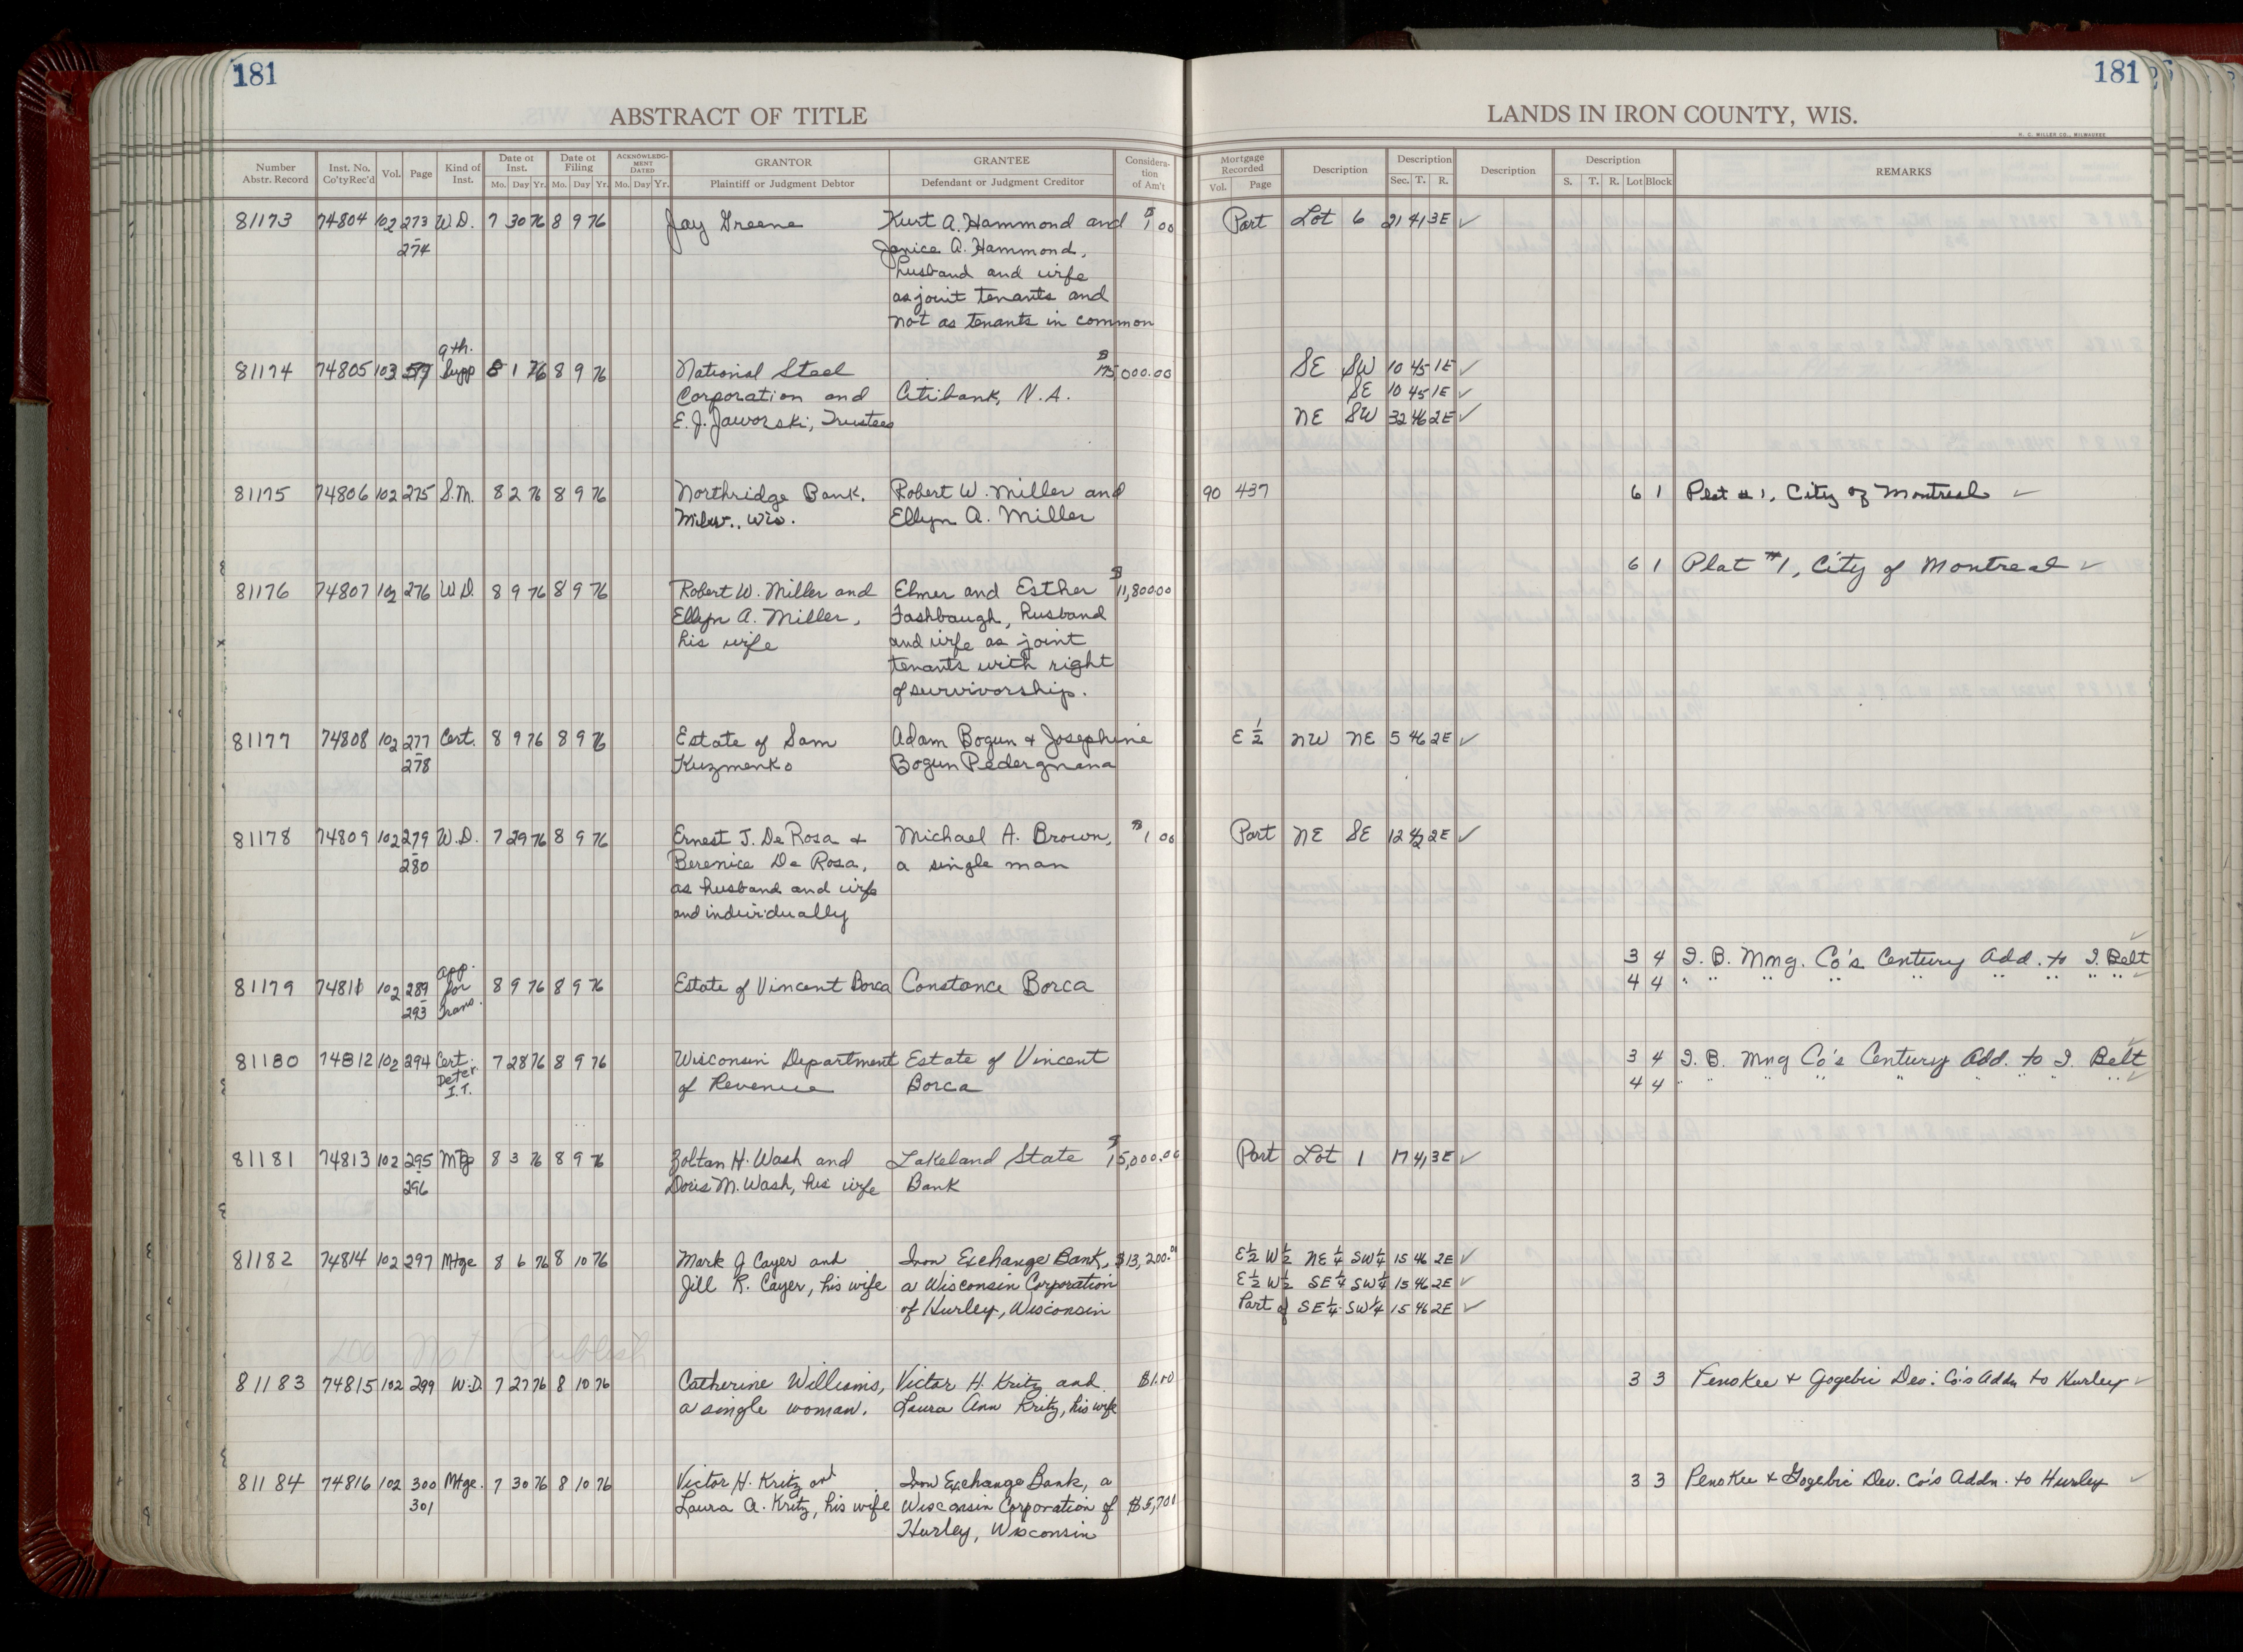 181
181
ABSTRACT OF TITLE
LANDS IN IRON COUNTY, WIS.
H. C. MILLER CO., MILWAUKEE
Number Abstr. Record | Inst. No. Co'ty Rec'd | Vol. | Page | Kind of Inst. | Date of Inst. Mo. Day Yr. | Date of Filing Mo. Day Yr. | ACKNOWLEDGMENT DATED Mo. Day Yr. | GRANTOR Plaintiff or Judgment Debtor | GRANTEE Defendant or Judgment Creditor | Consideration of Am't | Mortgage Recorded Vol. Page | Description | Description Sec. T. R. | Description | Description S. T. R. Lot Block | REMARKS
81173 74804 102 273 W.D. 7 30 76 8 9 76 Jay Greene Kurt A. Hammond and $1 00 Part Lot 6 21 41 3E ✓
274 Janice A. Hammond,
husband and wife
as joint tenants and
not as tenants in common
9th.
81174 74805 103 Supp 8 1 76 8 9 76 National Steel $175000.00 SE SW 10 45 1E ✓
Corporation and Citibank, N.A. SE 10 45 1E ✓
E. J. Jaworski, Trustees NE SW 32 46 2E ✓
81175 74806 102 275 S.M. 8 2 76 8 9 76 Northridge Bank. Robert W. Miller and 90 437 6 1 Plat #1, City of Montreal ✓
Milw., Wis. Ellyn A. Miller
6 1 Plat #1, City of Montreal ✓
81176 74807 102 276 W.D. 8 9 76 8 9 76 Robert W. Miller and Elmer and Esther $11,800.00
Ellyn A. Miller, Fashbaugh, husband
his wife and wife as joint
tenants with right
of survivorship.
81177 74808 102 277 Cert. 8 9 76 8 9 76 Estate of Sam Adam Bogun & Josephine E½ NW NE 5 46 2E ✓
278 Kuzmenko Bogun Pedergnana
81178 74809 102 279 W.D. 7 29 76 8 9 76 Ernest J. De Rosa & Michael A. Brown, $1 00 Part NE SE 12 42 2E ✓
280 Berenice De Rosa, a single man
as husband and wife
and individually
3 4 I. B. Mng. Co's Century Add. to I. Belt ✓
81179 74811 102 289 App. for Trans. 8 9 76 8 9 76 Estate of Vincent Borca Constance Borca 4 4 " " " " " " " " " ✓
293
81180 74812 102 294 Cert. 7 28 76 8 9 76 Wisconsin Department Estate of Vincent 3 4 I. B. Mng Co's Century Add. to I. Belt ✓
Deter. of Revenue Borca 4 4 " " " " " " " " " ✓
I.T.
81181 74813 102 295 Mtg 8 3 76 8 9 76 Zoltan H. Wash and Lakeland State $15,000.00 Part Lot 1 17 41 3E ✓
296 Doris M. Wash, his wife Bank
81182 74814 102 297 Mtge 8 6 76 8 10 76 Mark J Cayer and Iron Exchange Bank, $13,200.00 E½ W½ NE¼ SW¼ 15 46 2E ✓
Jill R. Cayer, his wife a Wisconsin Corporation E½ W½ SE¼ SW¼ 15 46 2E ✓
of Hurley, Wisconsin Part of SE¼ SW¼ 15 46 2E ✓
Do Not Publish
81183 74815 102 299 W.D 7 27 76 8 10 76 Catherine Williams, Victor H. Kritz and $1.00 3 3 Penokee & Gogebic Dev. Co's Addn to Hurley ✓
a single woman. Laura Ann Kritz, his wife
81184 74816 102 300 Mtge. 7 30 76 8 10 76 Victor H. Kritz and Iron Exchange Bank, a 3 3 Penokee & Gogebic Dev. Co's Addn. to Hurley ✓
301 Laura A. Kritz, his wife Wisconsin Corporation of
Hurley, Wisconsin